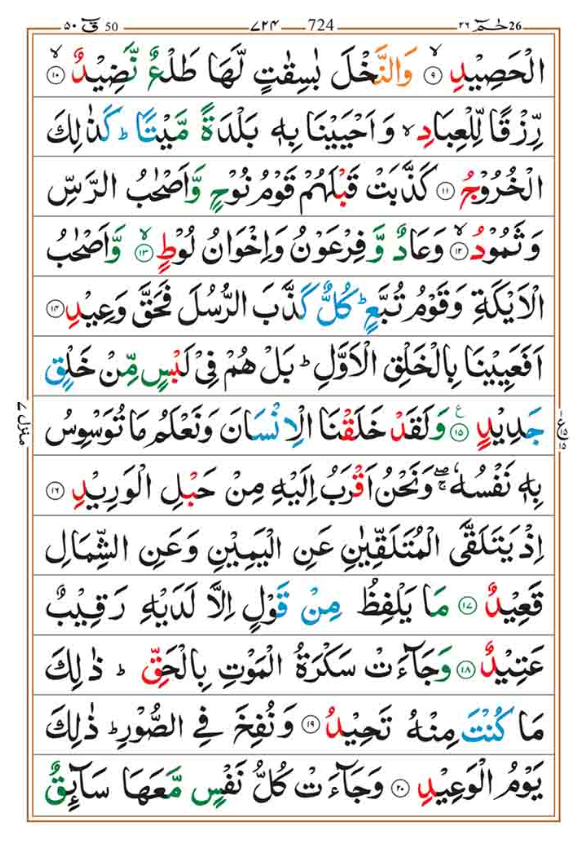 حٰمٓ 26 ۲۶ 724 ۷۲۴ قٓ 50 ۵۰
الْحَصِیْدِ ۙ﴿۹﴾ وَالنَّخْلَ بٰسِقٰتٍ لَّهَا طَلْعٌ نَّضِیْدٌ ۙ﴿۱۰﴾
رِّزْقًا لِّلْعِبَادِ ۙ وَاَحْیَیْنَا بِهٖ بَلْدَةً مَّیْتًا ؕ كَذٰلِكَ
الْخُرُوْجُ ﴿۱۱﴾ كَذَّبَتْ قَبْلَهُمْ قَوْمُ نُوْحٍ وَّاَصْحٰبُ الرَّسِّ
وَثَمُوْدُ ﴿۱۲﴾ وَعَادٌ وَّفِرْعَوْنُ وَاِخْوَانُ لُوْطٍ ﴿۱۳﴾ وَّاَصْحٰبُ
الْاَیْكَةِ وَقَوْمُ تُبَّعٍ ؕ كُلٌّ كَذَّبَ الرُّسُلَ فَحَقَّ وَعِیْدِ ﴿۱۴﴾
اَفَعَیِیْنَا بِالْخَلْقِ الْاَوَّلِ ؕ بَلْ هُمْ فِیْ لَبْسٍ مِّنْ خَلْقٍ
جَدِیْدٍ ﴿۱۵﴾ وَلَقَدْ خَلَقْنَا الْاِنْسَانَ وَنَعْلَمُ مَا تُوَسْوِسُ
بِهٖ نَفْسُهٗ ۖۚ وَنَحْنُ اَقْرَبُ اِلَیْهِ مِنْ حَبْلِ الْوَرِیْدِ ﴿۱۶﴾
اِذْ یَتَلَقَّی الْمُتَلَقِّیٰنِ عَنِ الْیَمِیْنِ وَعَنِ الشِّمَالِ
قَعِیْدٌ ﴿۱۷﴾ مَا یَلْفِظُ مِنْ قَوْلٍ اِلَّا لَدَیْهِ رَقِیْبٌ
عَتِیْدٌ ﴿۱۸﴾ وَجَآءَتْ سَكْرَةُ الْمَوْتِ بِالْحَقِّ ؕ ذٰلِكَ
مَا كُنْتَ مِنْهُ تَحِیْدُ ﴿۱۹﴾ وَنُفِخَ فِی الصُّوْرِ ؕ ذٰلِكَ
یَوْمُ الْوَعِیْدِ ﴿۲۰﴾ وَجَآءَتْ كُلُّ نَفْسٍ مَّعَهَا سَآىِٕقٌ
منزل ۷